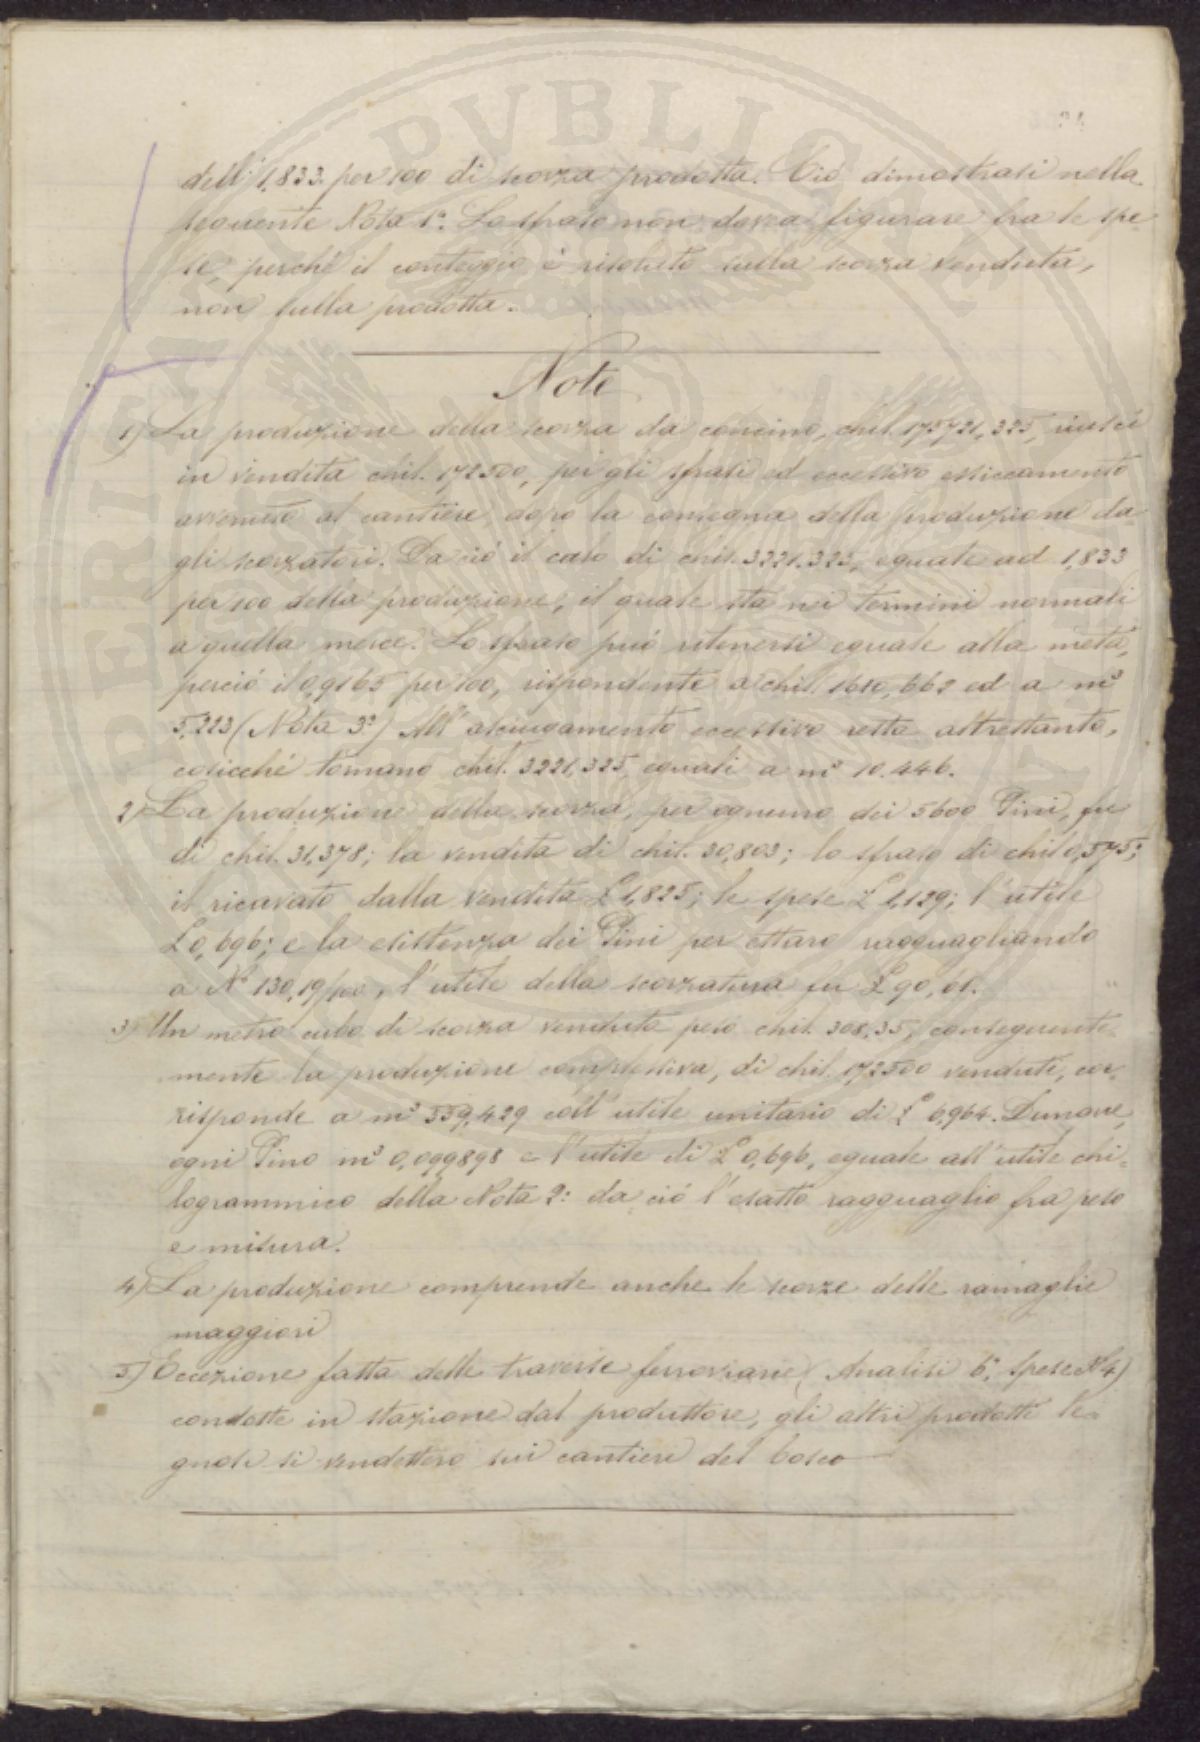 dell' 1,833 per 100 di scorza prodotta. Ciò dimostrasi nella
seguente Nota 1ª. Lo sfraso non dovea figurare fra le spe-
se, perchè il conteggio è risoluto sulla scorza venduta,
non sulla prodotta.
Note
1) La produzione della scorza da concino, chil. 175721,325, riuscì
in vendita chil. 172500, per gli sfrasi ed eccessivo essiccamento
avvenuto al cantiere, dopo la consegna della produzione da-
gli scorzatori. Da ciò il calo di chil. 3221.325, eguale ad 1,833
per 100 della produzione, il quale sta nei termini normali
a quella merce. Lo sfraso può ritenersi eguale alla metà,
perciò il 0,9165 per 100, rispondente a chil. 1610,662 ed a m³
5,223 (Nota 3ª) All' asciugamento eccessivo resta altrettanto,
cosicchè tornano chil. 3221,325 eguali a m³ 10.446.
2) La produzione della scorza, per ognuno dei 5600 Pini, fu
di chil. 31,378; la vendita di chil. 30,803; lo sfraso di chil 0,575;
il ricavato dalla vendita £ 1,825; le spese £ 1,129; l' utile
£ 0,696; e la esistenza dei Pini per ettaro ragguagliando
a Nº 130,19/100, l' utile della scorzatura fu £ 90,61.
3) Un metro cubo di scorza venduta pesò chil. 308,35, conseguente-
mente la produzione complessiva, di chil. 172500 venduti, cor-
risponde a m³ 559,429 coll' utile unitario di £ 6,964. Dunque,
ogni Pino m³ 0,099898 e l' utile di £ 0,696, eguale all' utile chi-
logrammico della Nota 2ª: da ciò l' esatto ragguaglio fra peso
e misura.
4) La produzione comprende anche le scorze delle ramaglie
maggiori
5) Eccezione fatta delle traverse ferroviarie (Analisi 6ª, Spese Nº 4)
condotte in stazione dal produttore, gli altri prodotti le-
gnosi si vendettero sui cantieri del bosco
PERIALE PVBLICE